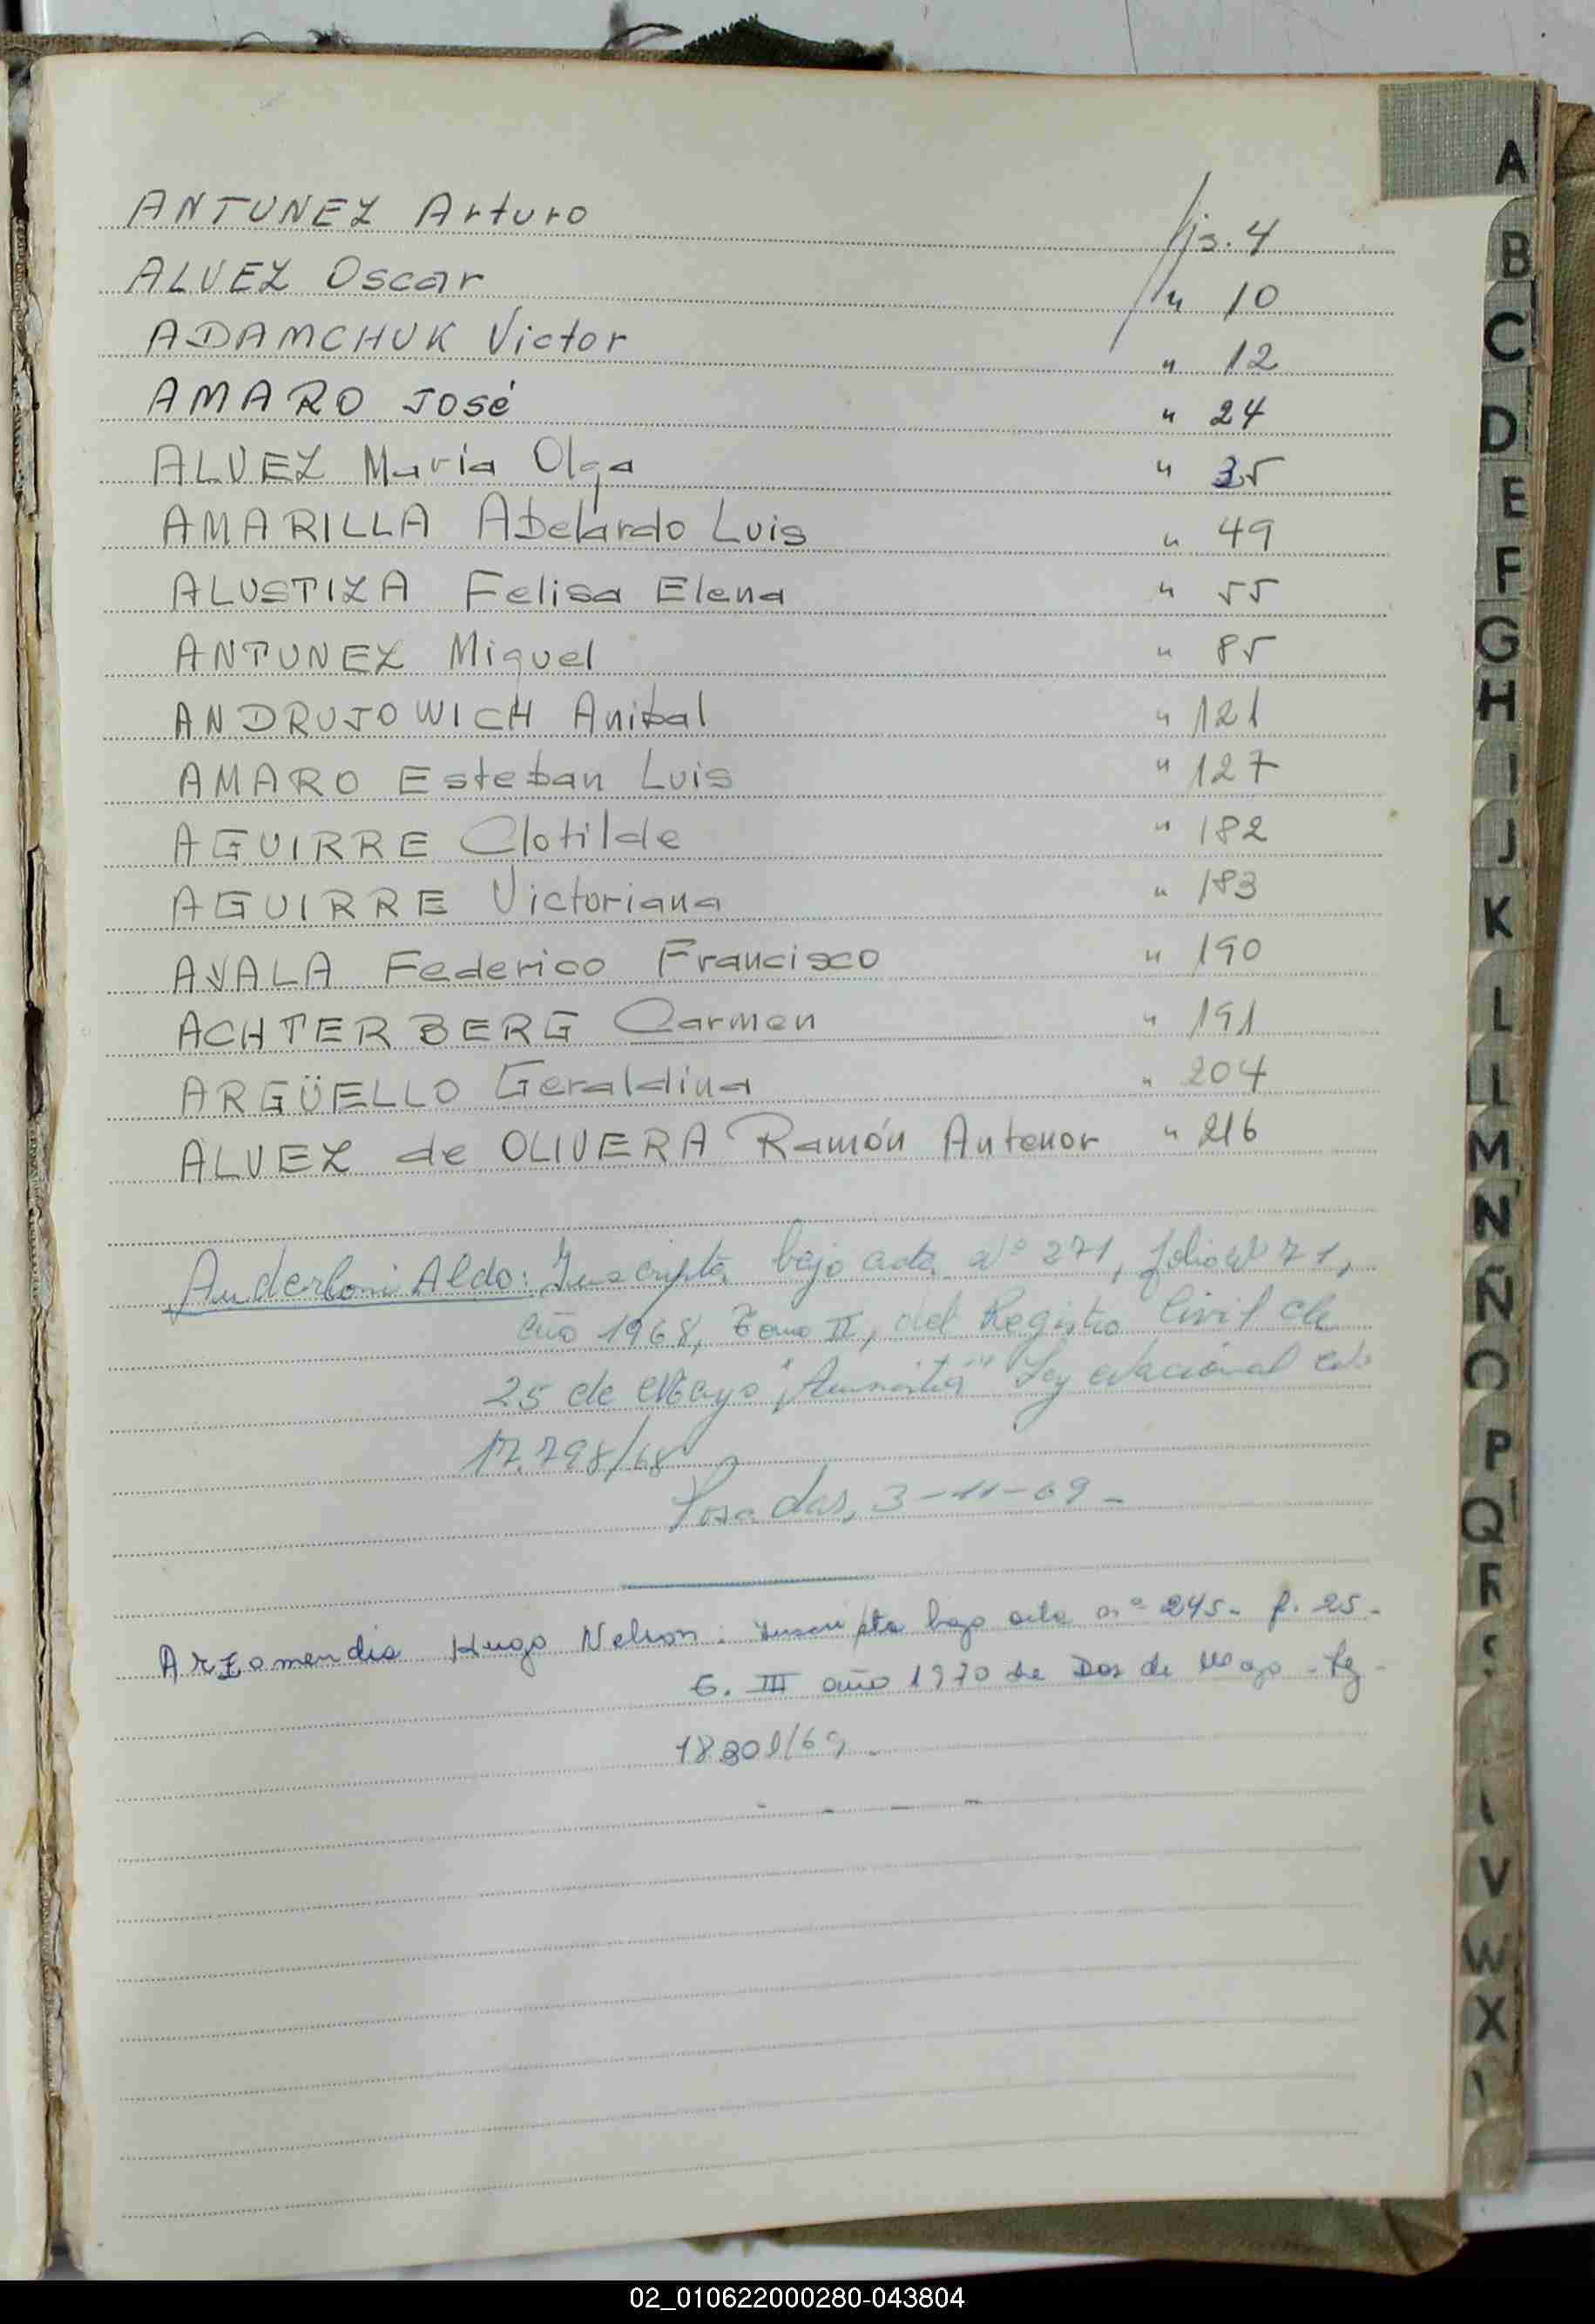 ANTUNEZ Arturo fjs. 4
ALVEZ Oscar " 10
ADAMCHUK Victor " 12
AMARO José " 24
ALVEZ María Olga " 35
AMARILLA Abelardo Luis " 49
ALUSTIZA Felisa Elena " 55
ANTUNEZ Miguel " 85
ANDRUJOWICH Anibal " 121
AMARO Esteban Luis " 127
AGUIRRE Clotilde " 182
AGUIRRE Victoriana " 183
AYALA Federico Francisco " 190
ACHTERBERG Carmen " 191
ARGÜELLO Geraldina " 204
ALVEZ de OLIVERA Ramón Antenor " 216
Anderloni Aldo: Inscripta bajo acta Nº 271, folio Nº 71,
año 1968, Tomo II, del Registro Civil de
25 de Mayo "Amnistia" Ley Nacional Nº
17.798/68
Posadas, 3-11-69-
Arzamendia Hugo Nelson: Inscripta bajo acta nº 245- f. 25-
T. III año 1970 de Dos de Mayo - Ley -
/69.
A
B
C
D
E
F
G
H
I
J
K
L
L
M
N
Ñ
O
P
Q
R
V
W
X
02_010622000280-043804